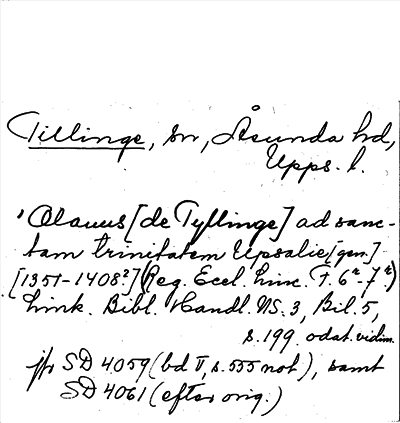 Tillinge, sn, Åsunda hd,
Upps. l.
'Olauus [de Tyllinge] ad sanc-
tam trinitatem Upsalie [gen.]
[1351-1408?] (Reg. Eccl. Linc. F. 6r-7r)
Link. Bibl. Handl. NS. 3, Bil. 5,
s. 199 odat. vidim.
jfr SD 4059 (bd V, s. 555 not), samt
SD 4061 (efter orig.)